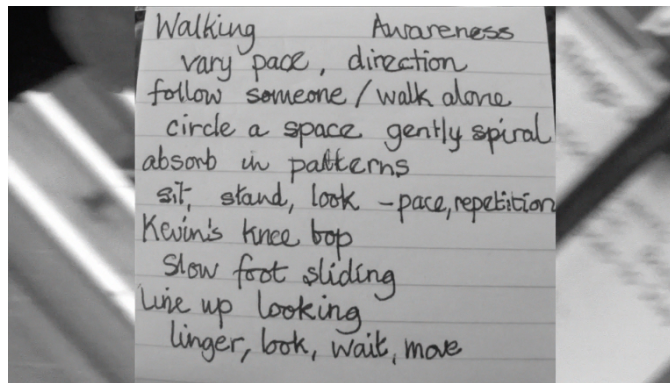 Walking Awareness
vary pace, direction
follow someone / walk alone
circle a space gently spiral
absorb in patterns
sit, stand, look - pace, repetition
Kevin's knee bop
Slow foot sliding
Line up looking
linger, look, wait, move